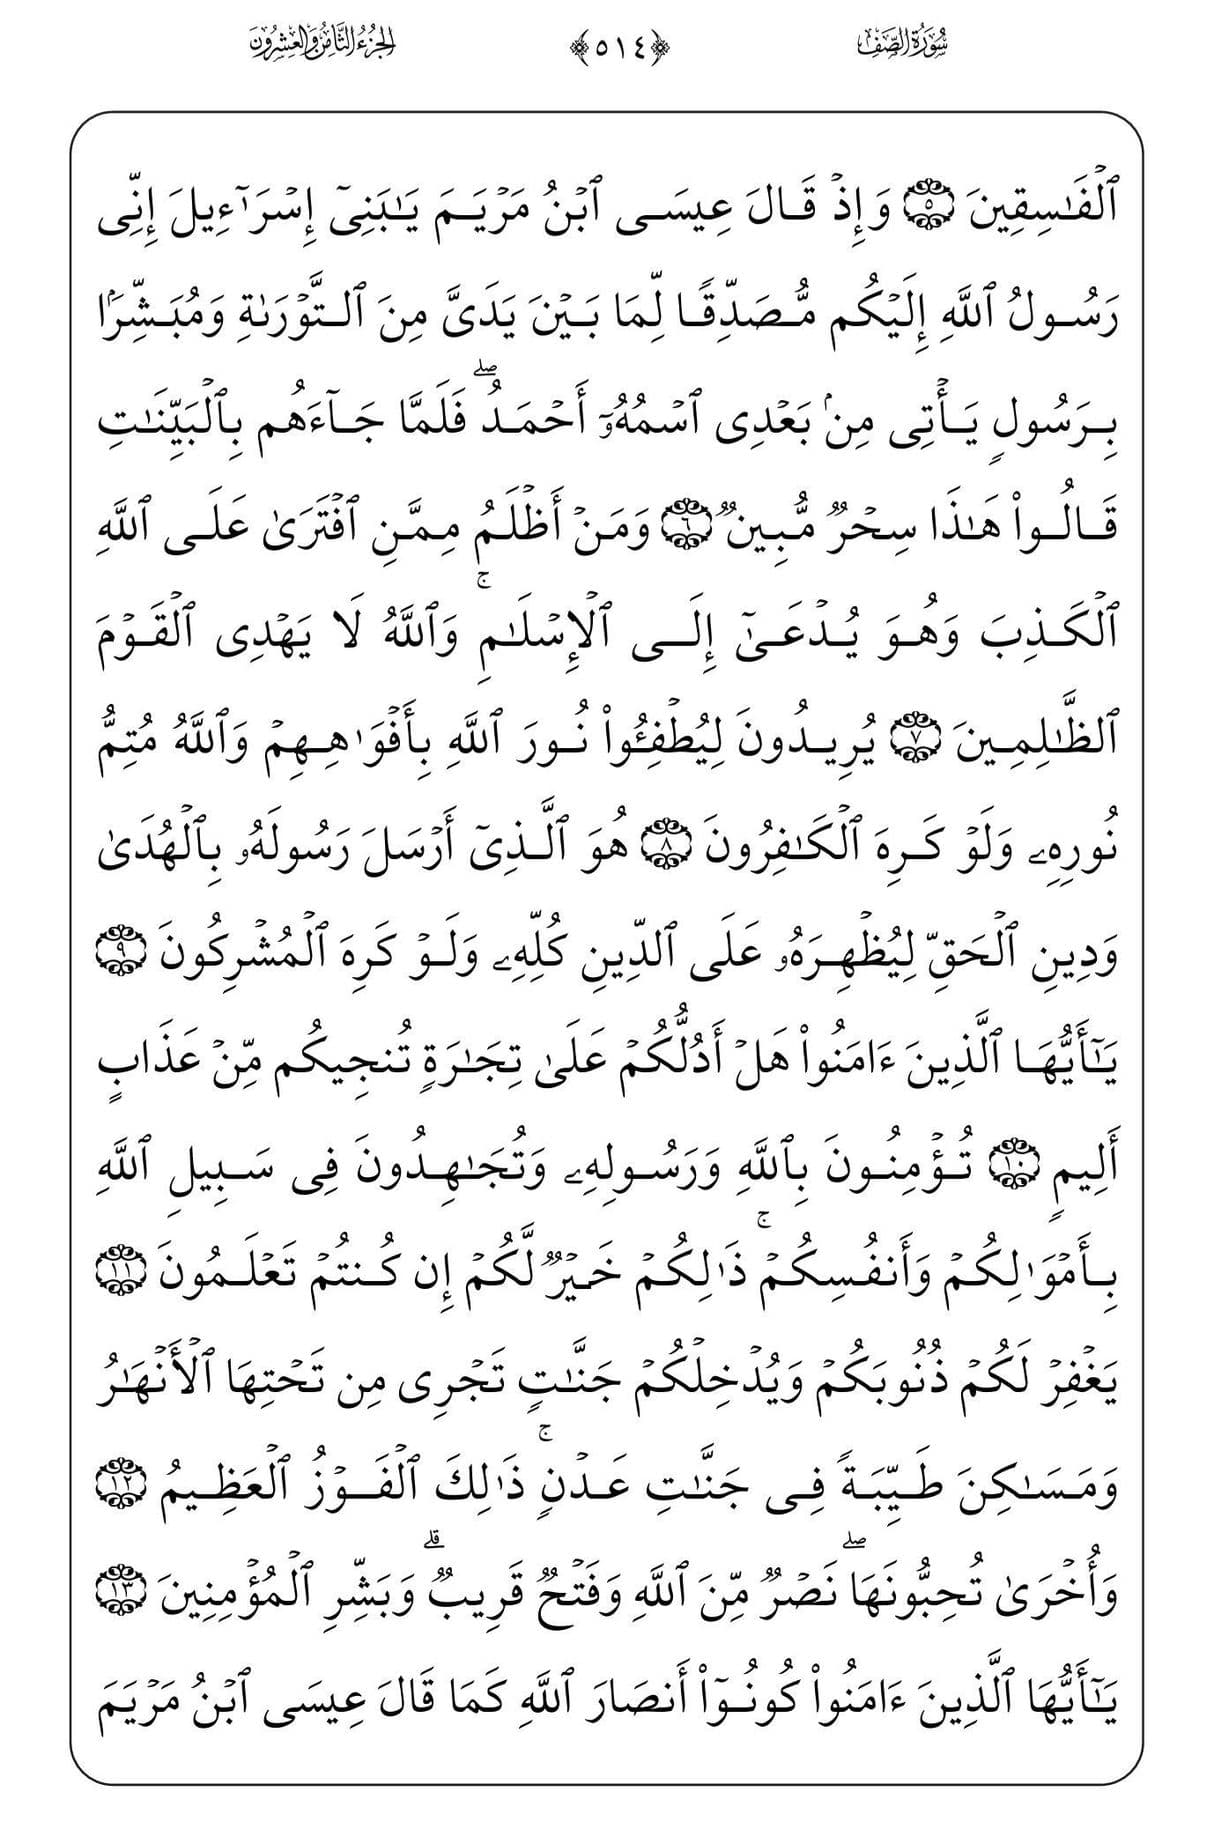 سُورَةُ الصَّفِّ ﴿٥١٤﴾ الجُزْءُ الثَّامِنُ وَالعِشْرُونَ
ٱلۡفَـٰسِقِينَ ٥ وَإِذۡ قَالَ عِيسَى ٱبۡنُ مَرۡيَمَ يَـٰبَنِىٓ إِسۡرَٰٓءِيلَ إِنِّى
رَسُولُ ٱللَّهِ إِلَيۡكُم مُّصَدِّقࣰا لِّمَا بَيۡنَ يَدَىَّ مِنَ ٱلتَّوۡرَىٰةِ وَمُبَشِّرَۢا
بِرَسُولࣲ يَأۡتِى مِنۢ بَعۡدِى ٱسۡمُهُۥٓ أَحۡمَدُۖ فَلَمَّا جَآءَهُم بِٱلۡبَيِّنَـٰتِ
قَالُوا۟ هَـٰذَا سِحۡرࣱ مُّبِينࣱ ٦ وَمَنۡ أَظۡلَمُ مِمَّنِ ٱفۡتَرَىٰ عَلَى ٱللَّهِ
ٱلۡكَذِبَ وَهُوَ يُدۡعَىٰٓ إِلَى ٱلۡإِسۡلَـٰمِۚ وَٱللَّهُ لَا يَهۡدِى ٱلۡقَوۡمَ
ٱلظَّـٰلِمِينَ ٧ يُرِيدُونَ لِيُطۡفِـُٔوا۟ نُورَ ٱللَّهِ بِأَفۡوَٰهِهِمۡ وَٱللَّهُ مُتِمُّ
نُورِهِۦ وَلَوۡ كَرِهَ ٱلۡكَـٰفِرُونَ ٨ هُوَ ٱلَّذِىٓ أَرۡسَلَ رَسُولَهُۥ بِٱلۡهُدَىٰ
وَدِينِ ٱلۡحَقِّ لِيُظۡهِرَهُۥ عَلَى ٱلدِّينِ كُلِّهِۦ وَلَوۡ كَرِهَ ٱلۡمُشۡرِكُونَ ٩
يَـٰٓأَيُّهَا ٱلَّذِينَ ءَامَنُوا۟ هَلۡ أَدُلُّكُمۡ عَلَىٰ تِجَـٰرَةࣲ تُنجِيكُم مِّنۡ عَذَابٍ
أَلِيمࣲ ١٠ تُؤۡمِنُونَ بِٱللَّهِ وَرَسُولِهِۦ وَتُجَـٰهِدُونَ فِى سَبِيلِ ٱللَّهِ
بِأَمۡوَٰلِكُمۡ وَأَنفُسِكُمۡۚ ذَٰلِكُمۡ خَيۡرࣱ لَّكُمۡ إِن كُنتُمۡ تَعۡلَمُونَ ١١
يَغۡفِرۡ لَكُمۡ ذُنُوبَكُمۡ وَيُدۡخِلۡكُمۡ جَنَّـٰتࣲ تَجۡرِى مِن تَحۡتِهَا ٱلۡأَنۡهَـٰرُ
وَمَسَـٰكِنَ طَيِّبَةࣰ فِى جَنَّـٰتِ عَدۡنࣲۚ ذَٰلِكَ ٱلۡفَوۡزُ ٱلۡعَظِيمُ ١٢
وَأُخۡرَىٰ تُحِبُّونَهَاۖ نَصۡرࣱ مِّنَ ٱللَّهِ وَفَتۡحࣱ قَرِيبࣱۗ وَبَشِّرِ ٱلۡمُؤۡمِنِينَ ١٣
يَـٰٓأَيُّهَا ٱلَّذِينَ ءَامَنُوا۟ كُونُوٓا۟ أَنصَارَ ٱللَّهِ كَمَا قَالَ عِيسَى ٱبۡنُ مَرۡيَمَ